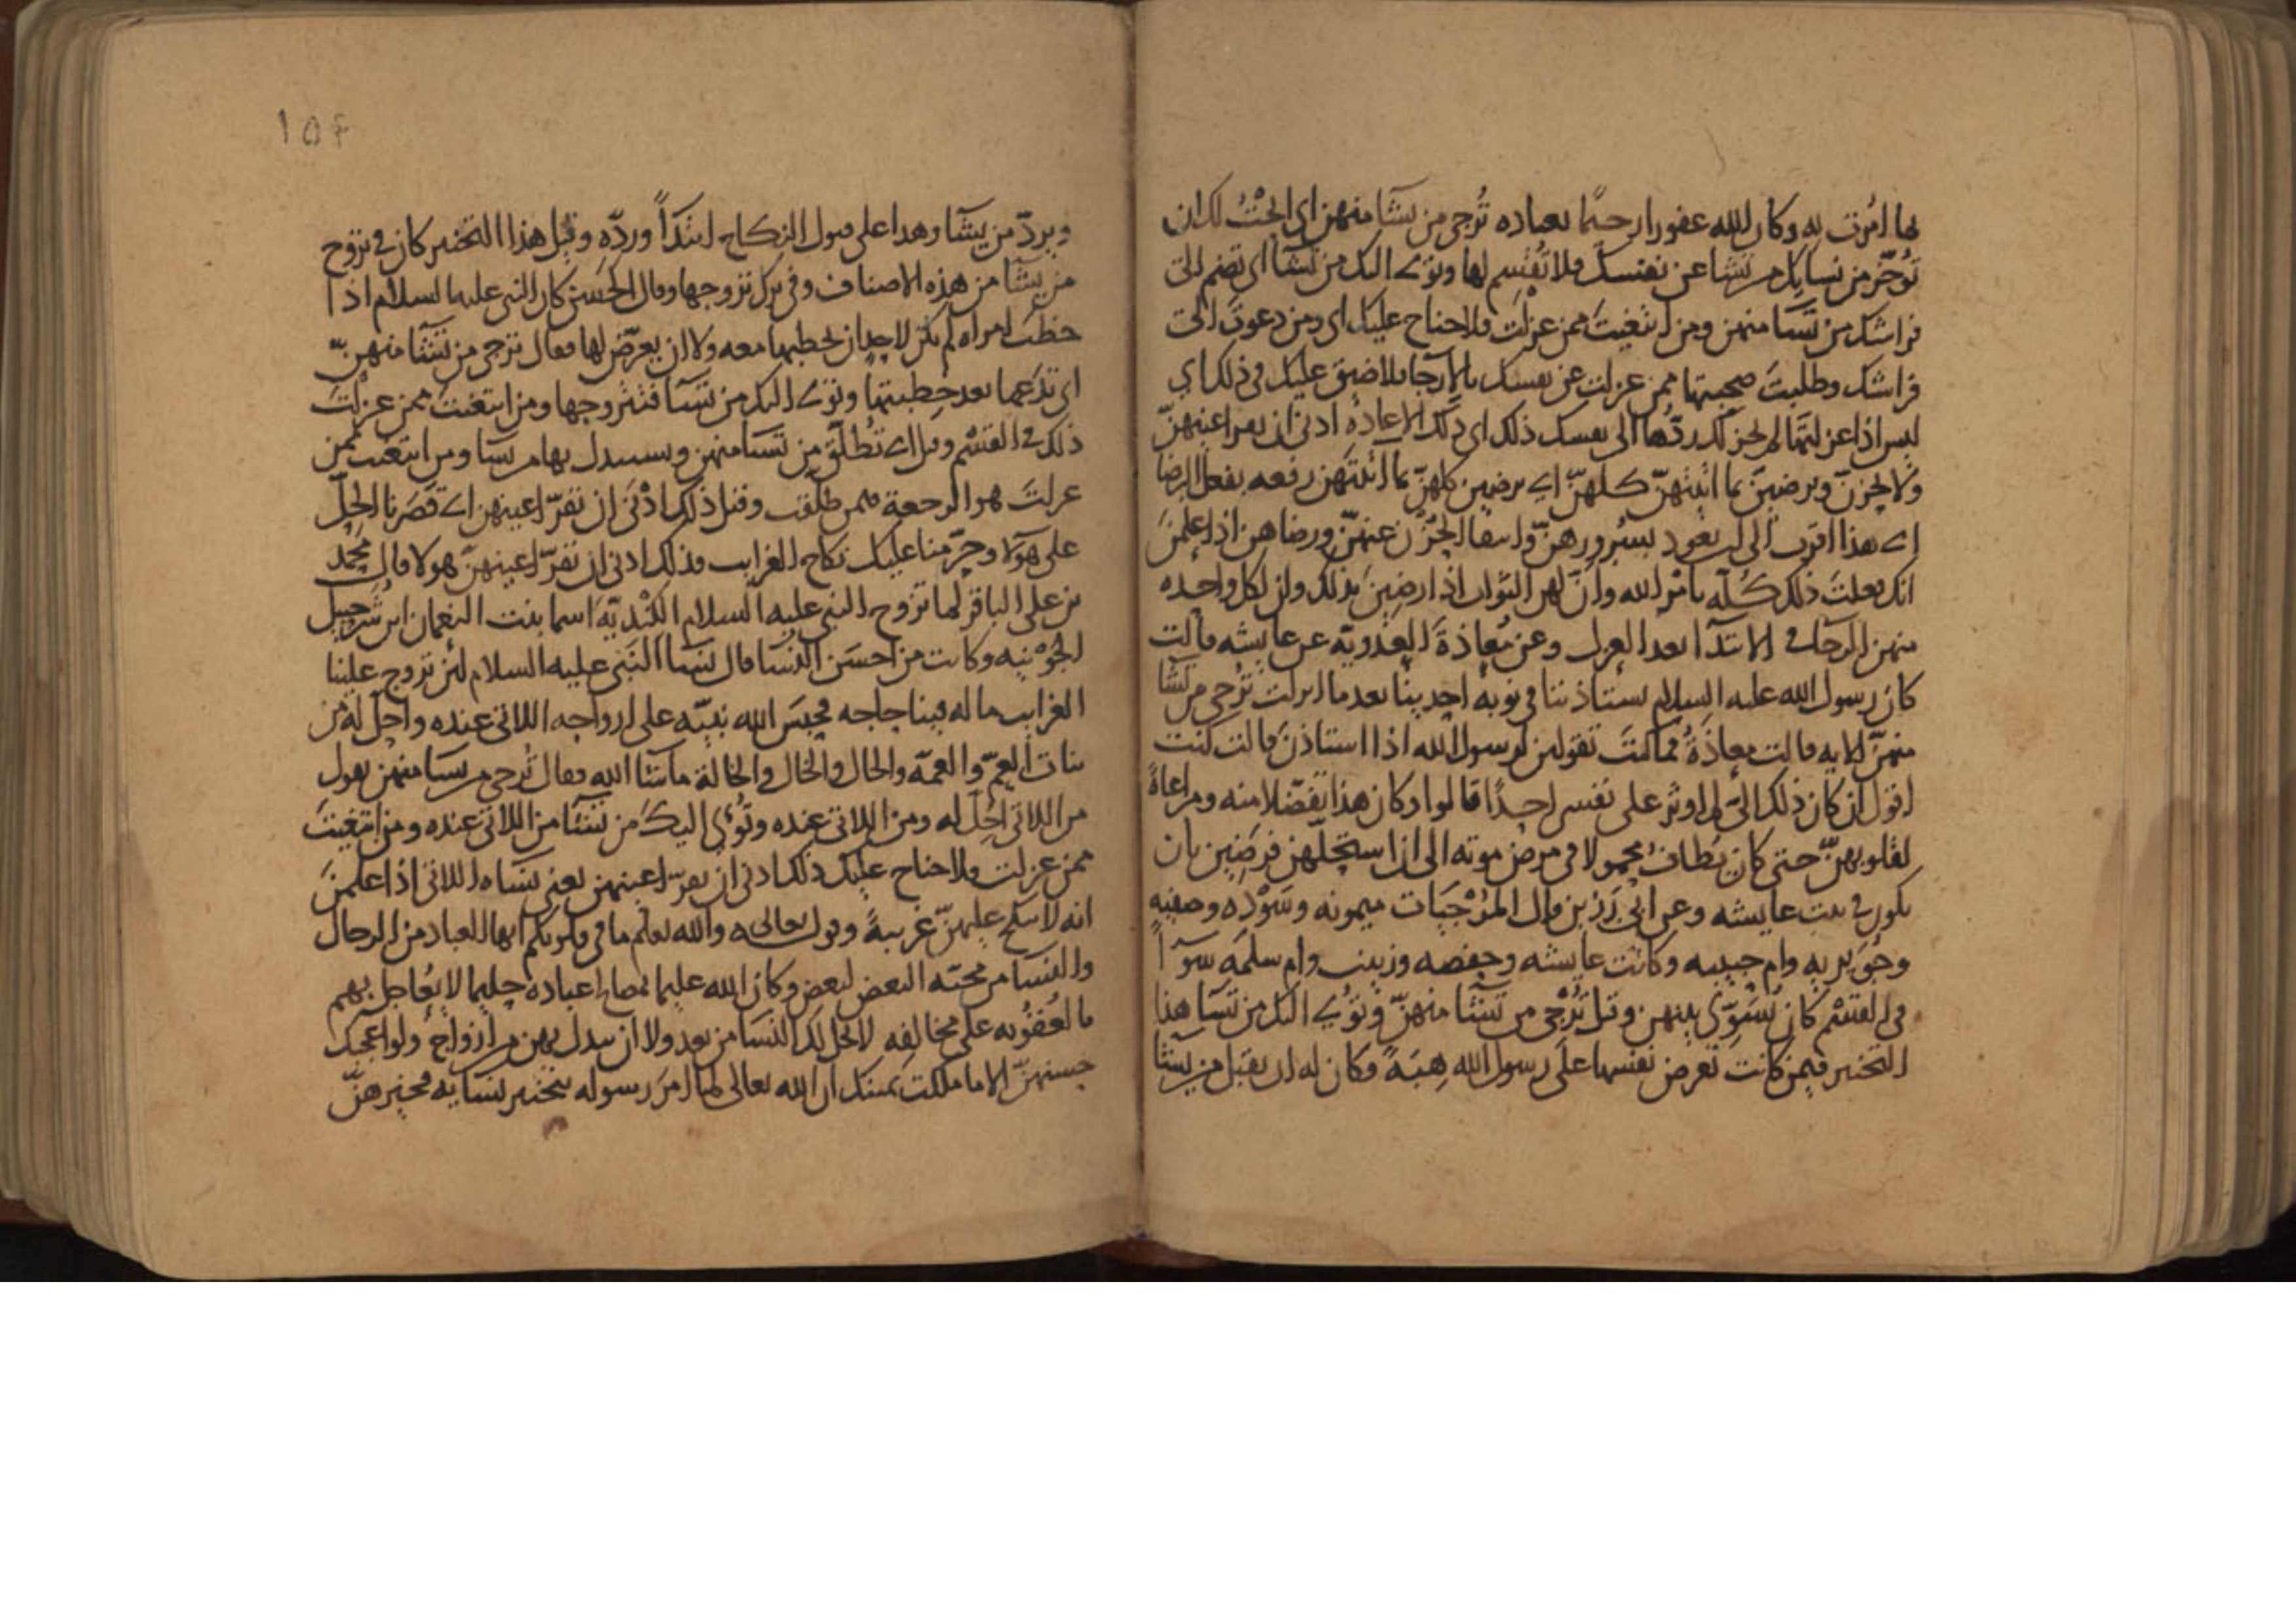 لما امرت به وكان الله غفورا رحيما بعباده تُرجي من تشا منهن اى ابحتُ لك ان
تؤخّر من نسايك من تشا عن نفسك فلا تَقْسِم لها وتؤى اليك من تشآ اى تضم الى
فراشك من تشا منهن ومن ابتغيتَ ممن عزلت فلا جناح عليك اى ومن دعوتَ الى
فراشك وطلبتَ صحبتها ممن عزلت عن نفسك بالارجآ فلا ضيق عليك فى ذلك اي
ليس اذا عزلتها لم يجز لك ردّها الى نفسك ذلك اى ذلك الاعادة ادنى ان تقر اعينهنّ
ولا يحزنّ ويرضينّ بما اتيتهنّ كلهنّ اى يرضين كلهنّ بما اتيتهن رفعه بفعل الرضا
اى هذا اقرب الى ان يعود بسُرورهنّ وانتفا الحُزْن عنهنّ ورضاهن اذا علمنَ
انك فعلتَ ذلك كُلّه بامر الله وانّ لهن الثواب اذا رضينَ بذلك وان لكل واحده
منهن الرجا فى الابتدآ بعد العزل وعن مُعاذةَ العَدَويّة عن عايشه قالت
كان رسول الله عليه السلام يستاذننا فى نوبة احدينا بعد ما انزلت تُرجى من تشا
منهنّ الايه قالت معاذَةُ فما كنتَ تقولين لرسول الله اذا استاذنَ قالت كنت
اقول ان كان ذلك الىّ لم اوثر على نفسى احدًا قالوا وكان هذا تفضّلا منه ومراعاةً
لقلوبهنّ حتى كان يُطافُ محمولا فى مرض موته الى ان استحلّهن فرضين بان
يكون فى بيت عايشه وعن ابى رَزين قال المُرْجَيات ميمونه وسَوْدَه وصفيه
وجُوَيريه وام حبيبه وكانت عايشه وحفصه وزينب وام سلمَه سوآً
فى القَسْم كان يُسَوّى بينهن وقيل تُرْجى من تشآ منهنّ وتؤى اليك من تشا هذا
التخيير فيمن كانت تعرض نفسها على رسول الله هِبَةً فكان له ان يقبل من يشا
١٥۴
ويردّ من يشآ وهذا على قبول النكاح ابتدآً وردّه وقيل هذا التخيير كان فى تزوج
من يشآ من هذه الاصناف وفى ترك تزوجها وقال الحَسَن كان النبى عليه السلام اذا
خطبَ امراه لم يكن لاحدٍ ان يخطبها معه ولا ان يعرّض لها فقال ترجى من تشآ منهنّ
اى تدعها بعد خِطبتها وتؤى اليك من تشآ فتتزوجها ومن ابتغيتَ ممن عزلْتَ
ذلك فى القَسْم وقيل اى تُطلّق من تشا منهن وتستبدل بها من تشا ومن ابتغيت ممن
عزلتَ هو الرجعة فيمن طلّقت وقيل ذلك ادْنَى ان تقرّ اعينهن اى قَصَرنا الحِلّ
على هولا وحرّمنا عليك نكاح الغرايب فذلك ادنى ان تقرّ اعينهنّ هولا وقال محمّد
بن على الباقر لما تزوج النبى عليه السلام الكِنْديّة اسما بنت النعمان ابن شرَحبيل
الجَوْنيه وكانت من احسَن النسا قال نسآ النبى عليه السلام لئن تزوج علينا
الغرايب ما له فينا حاجه فحبَسَ الله نبيّه على ازواجه اللاتى عنده واحلّ له من
بنات العمّ والعمّة والخال والخالة ما شآ الله فقال تُرجى من تشا منهن يقول
من اللاتى اُحِلّ له ومن اللاتى عنده وتُؤى اليكَ من تشآ من اللاتى عنده ومن ابتغيتَ
ممن عزلت فلا جناح عليك ذلك ادنى ان تقرّ اعينهن يعنى نسَاه اللاتى اذا علمنَ
انه لا ينكح عليهنّ غَريبةً وقوله تعالى ه والله يعلم ما فى قلوبكم ايها العباد من الرجال
والنسآ من محبّه البعض لبعض وكان الله عليما بمصالح عباده حليما لا يُعاجل بهم
بالعُقُوبه على مخالفه لا يحل لك النسَا من بعد ولا ان تبدل بهن من ازواج ولو اعجبك
حسنهنّ الا ما ملكت يمينك ان الله تعالى لما امرَ رسوله بتخيير نسايه فخيرهنّ